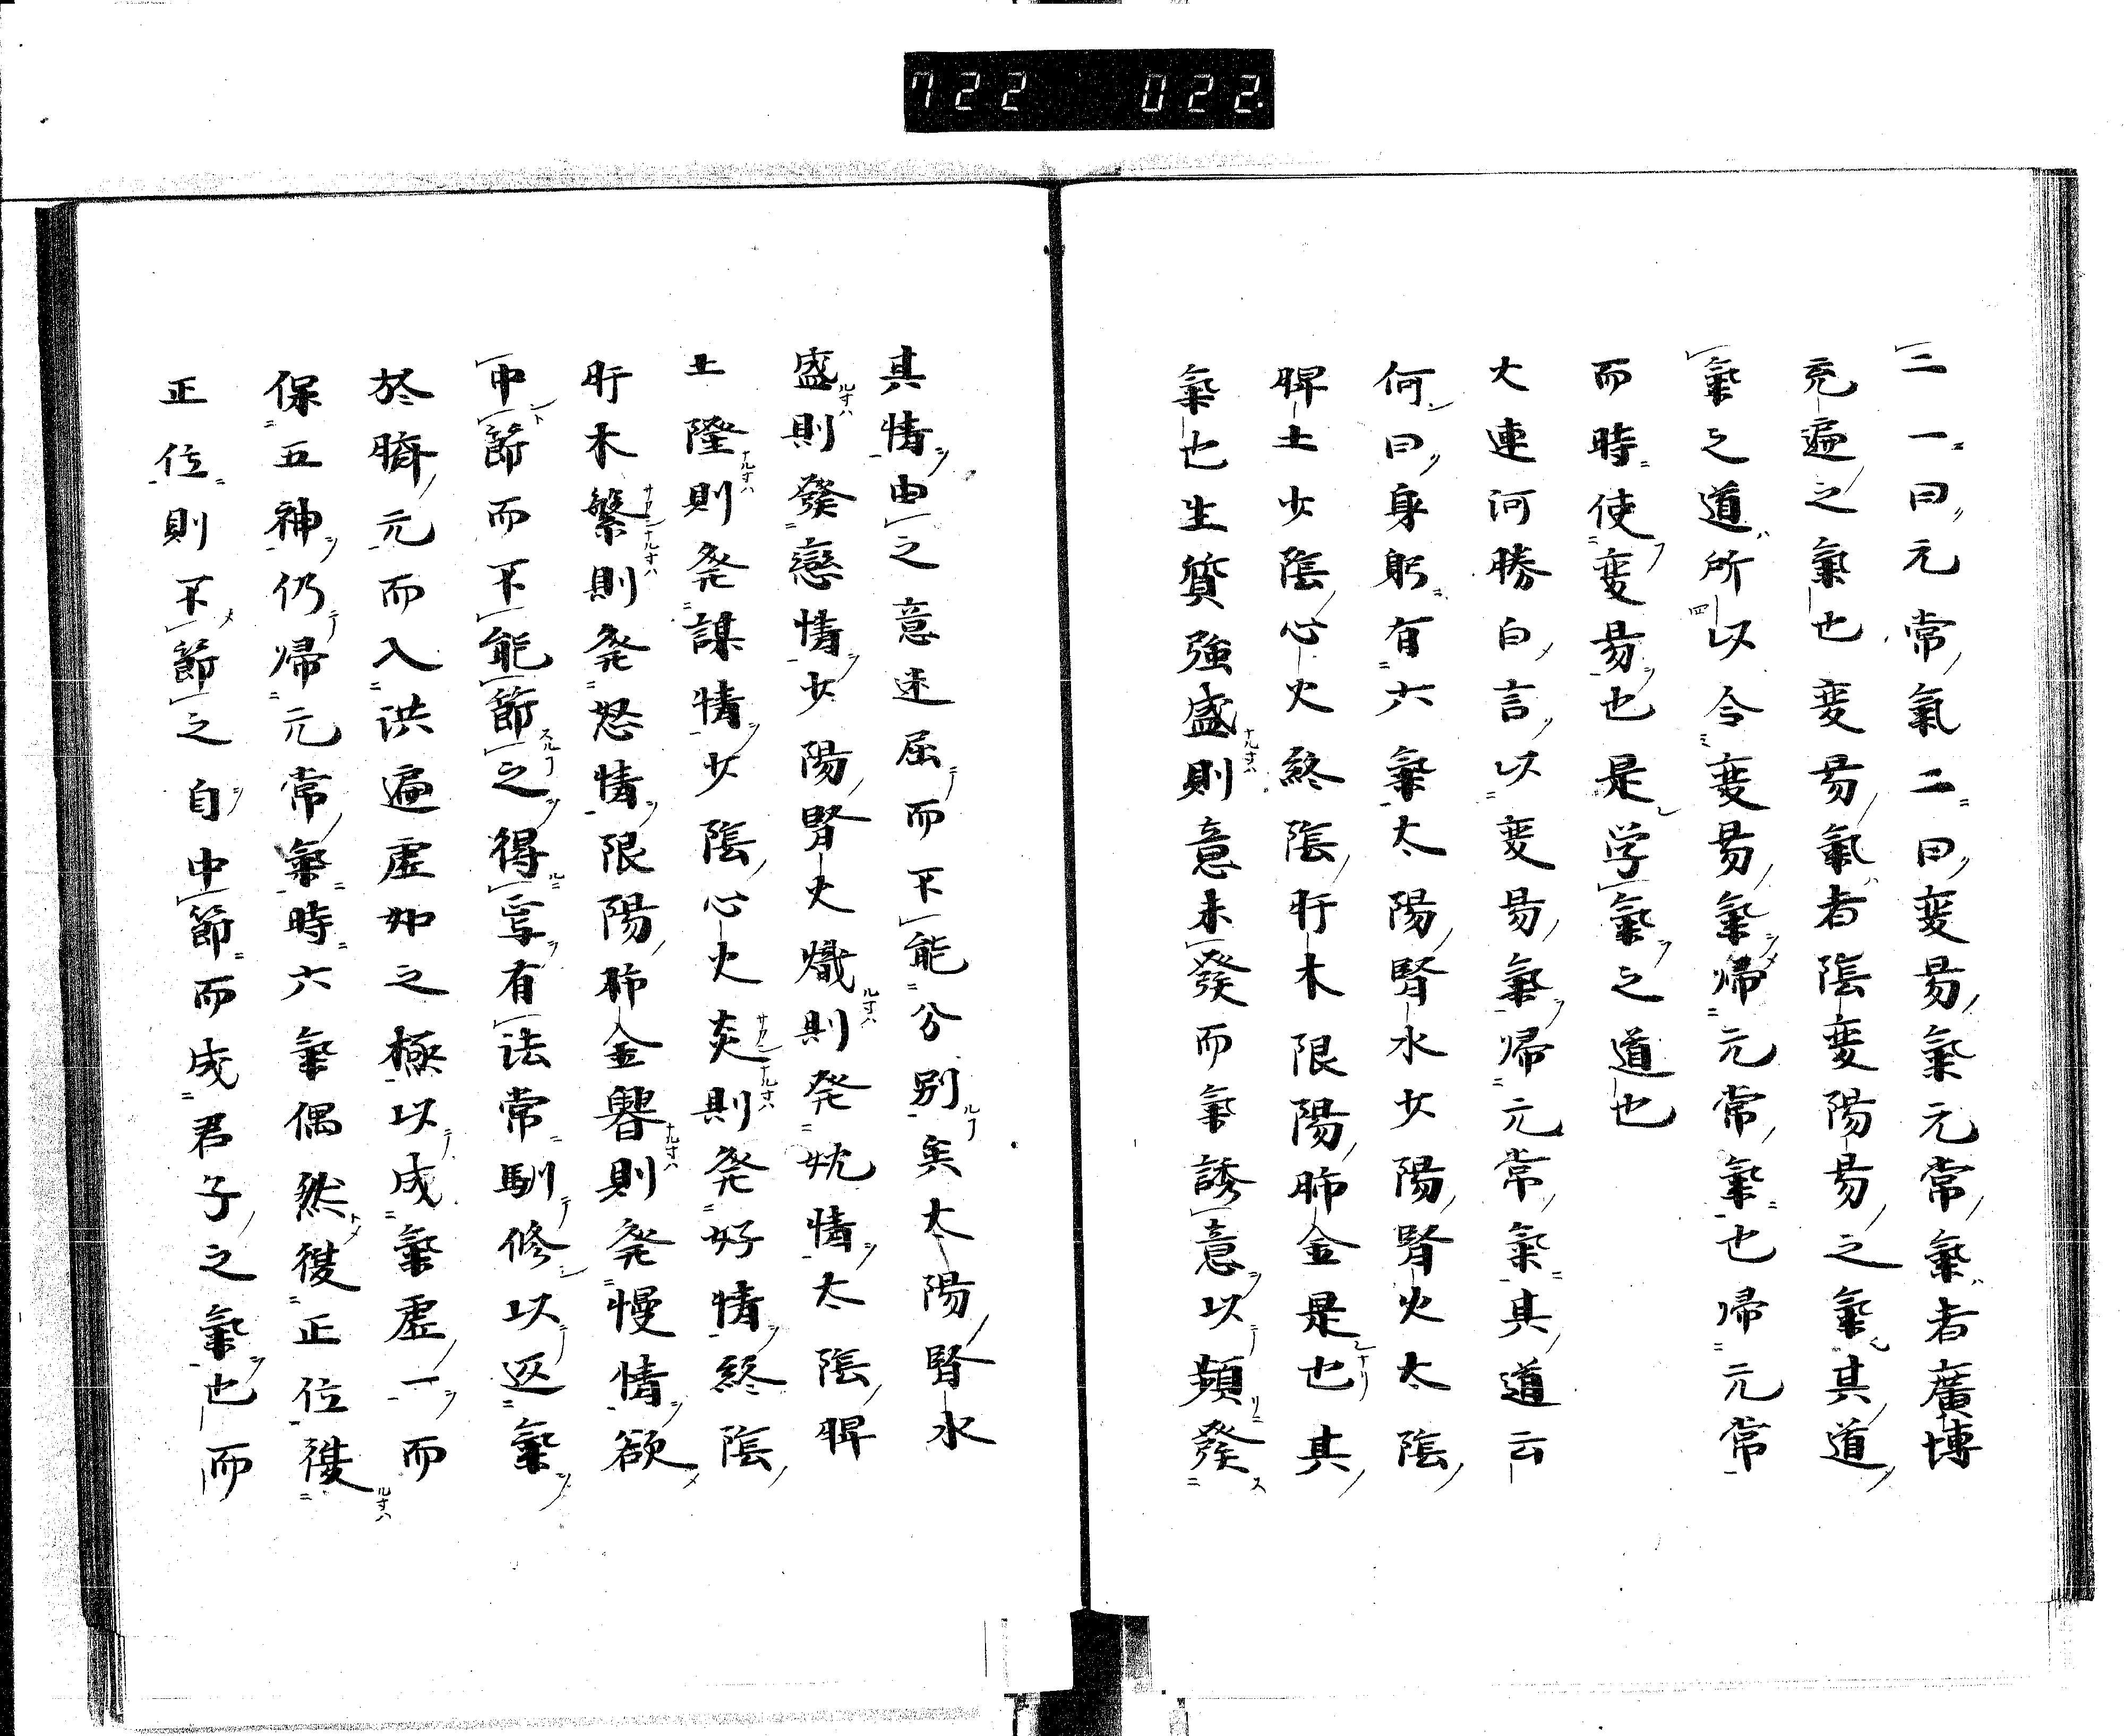 722 022.
二一曰元常氣二曰変昜氣元常氣者廣博
充遍之氣也変昜氣者陰変陽昜之氣其道
氣之道所以令変昜氣帰元常氣也帰元常
而時使変昜也是学氣之道也
大連河勝白言以変昜氣帰元常氣其道云
何曰身躬有六氣太陽腎水少陽腎火太陰
脾土少陰心火終陰肝木限陽肺金是也其
氣也生質強盛則意未發而氣誘意以頻發
其情由之意迷屈而不能分別矣太陽腎水
盛則發戀情少陽腎火熾則発妣情太陰脾
土隆則発謀情少陰心火炎則発好情終陰
肝木繁則発怒情限陽肺金磐則発慢情欲
中節而不能節之得寧有法常馴修以返氣
於臍元而入洪遍虚如之極以成氣虚一而
保五神仍帰元常氣時六氣偶然復正位復
正位則不節之自中節而成君子之氣也而